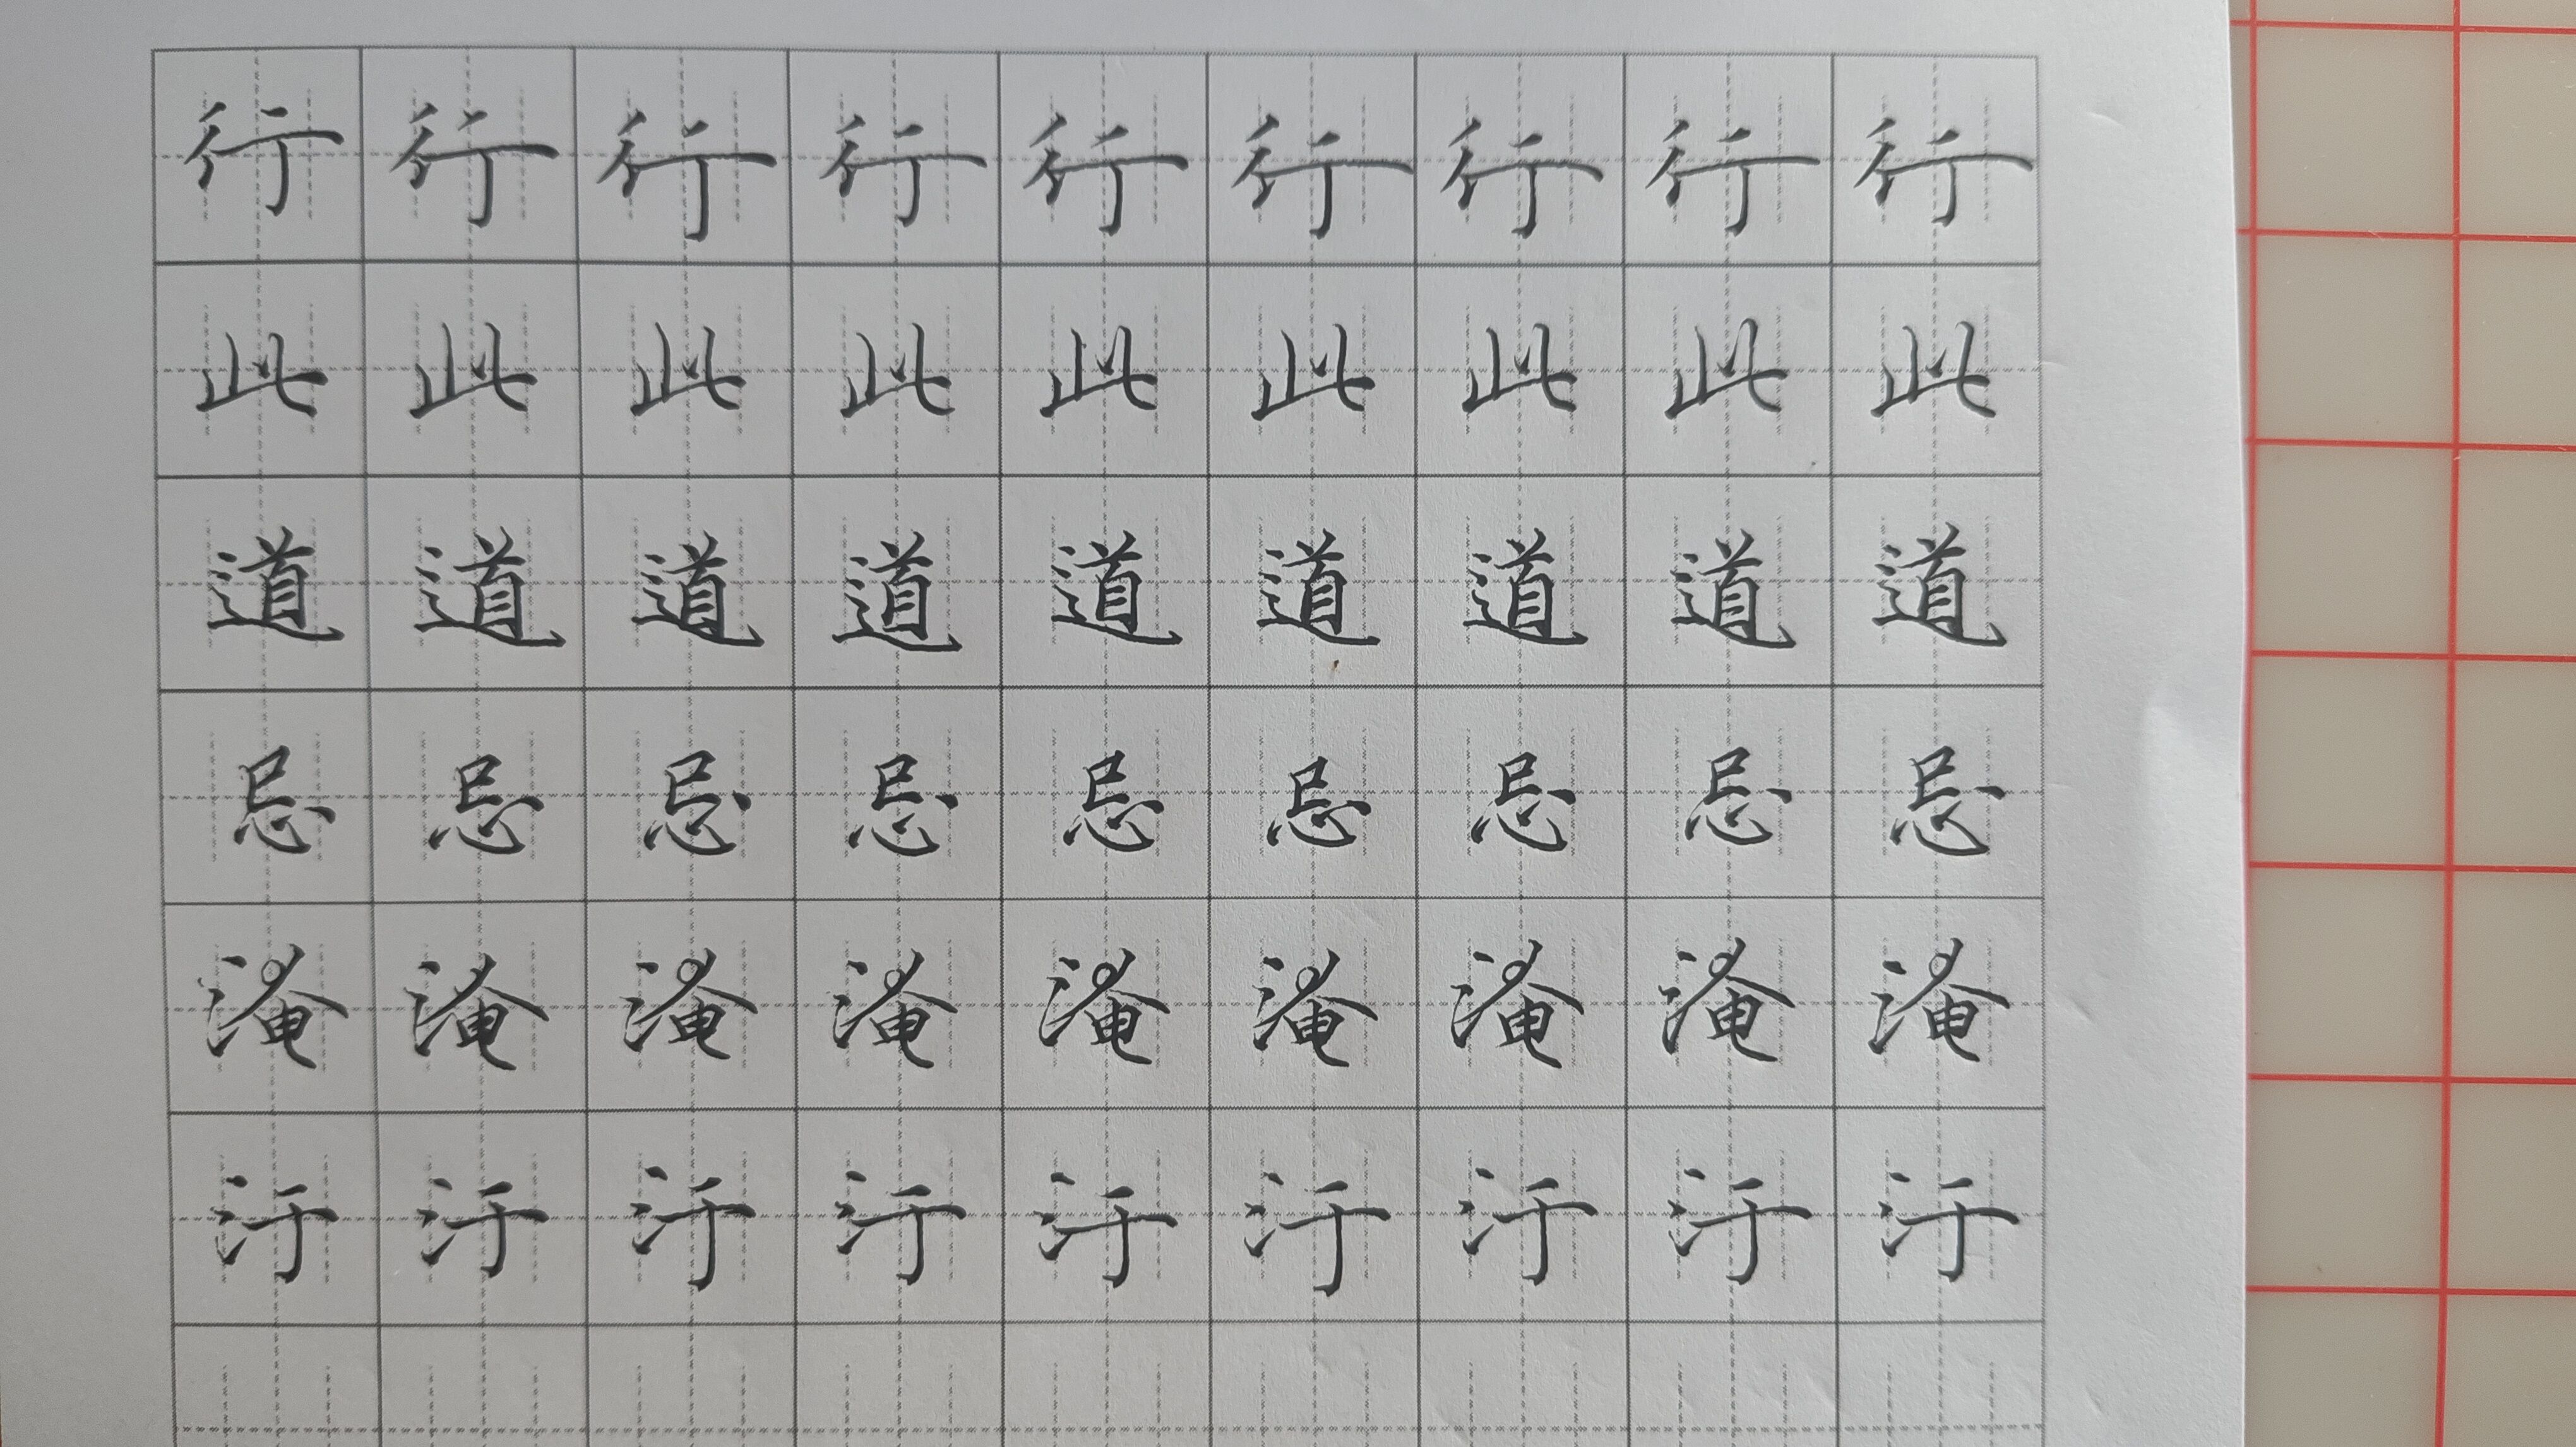 行行行行行行行行行
此此此此此此此此此
道道道道道道道道道
忌忌忌忌忌忌忌忌忌
淹淹淹淹淹淹淹淹淹
汙汙汙汙汙汙汙汙汙